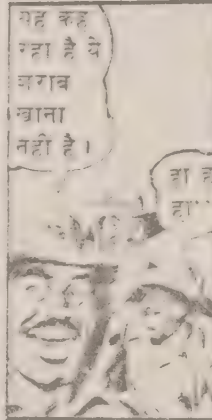 यह कह
रहा है ये
शराब
खाना
नहीं है।
हा ह
हा